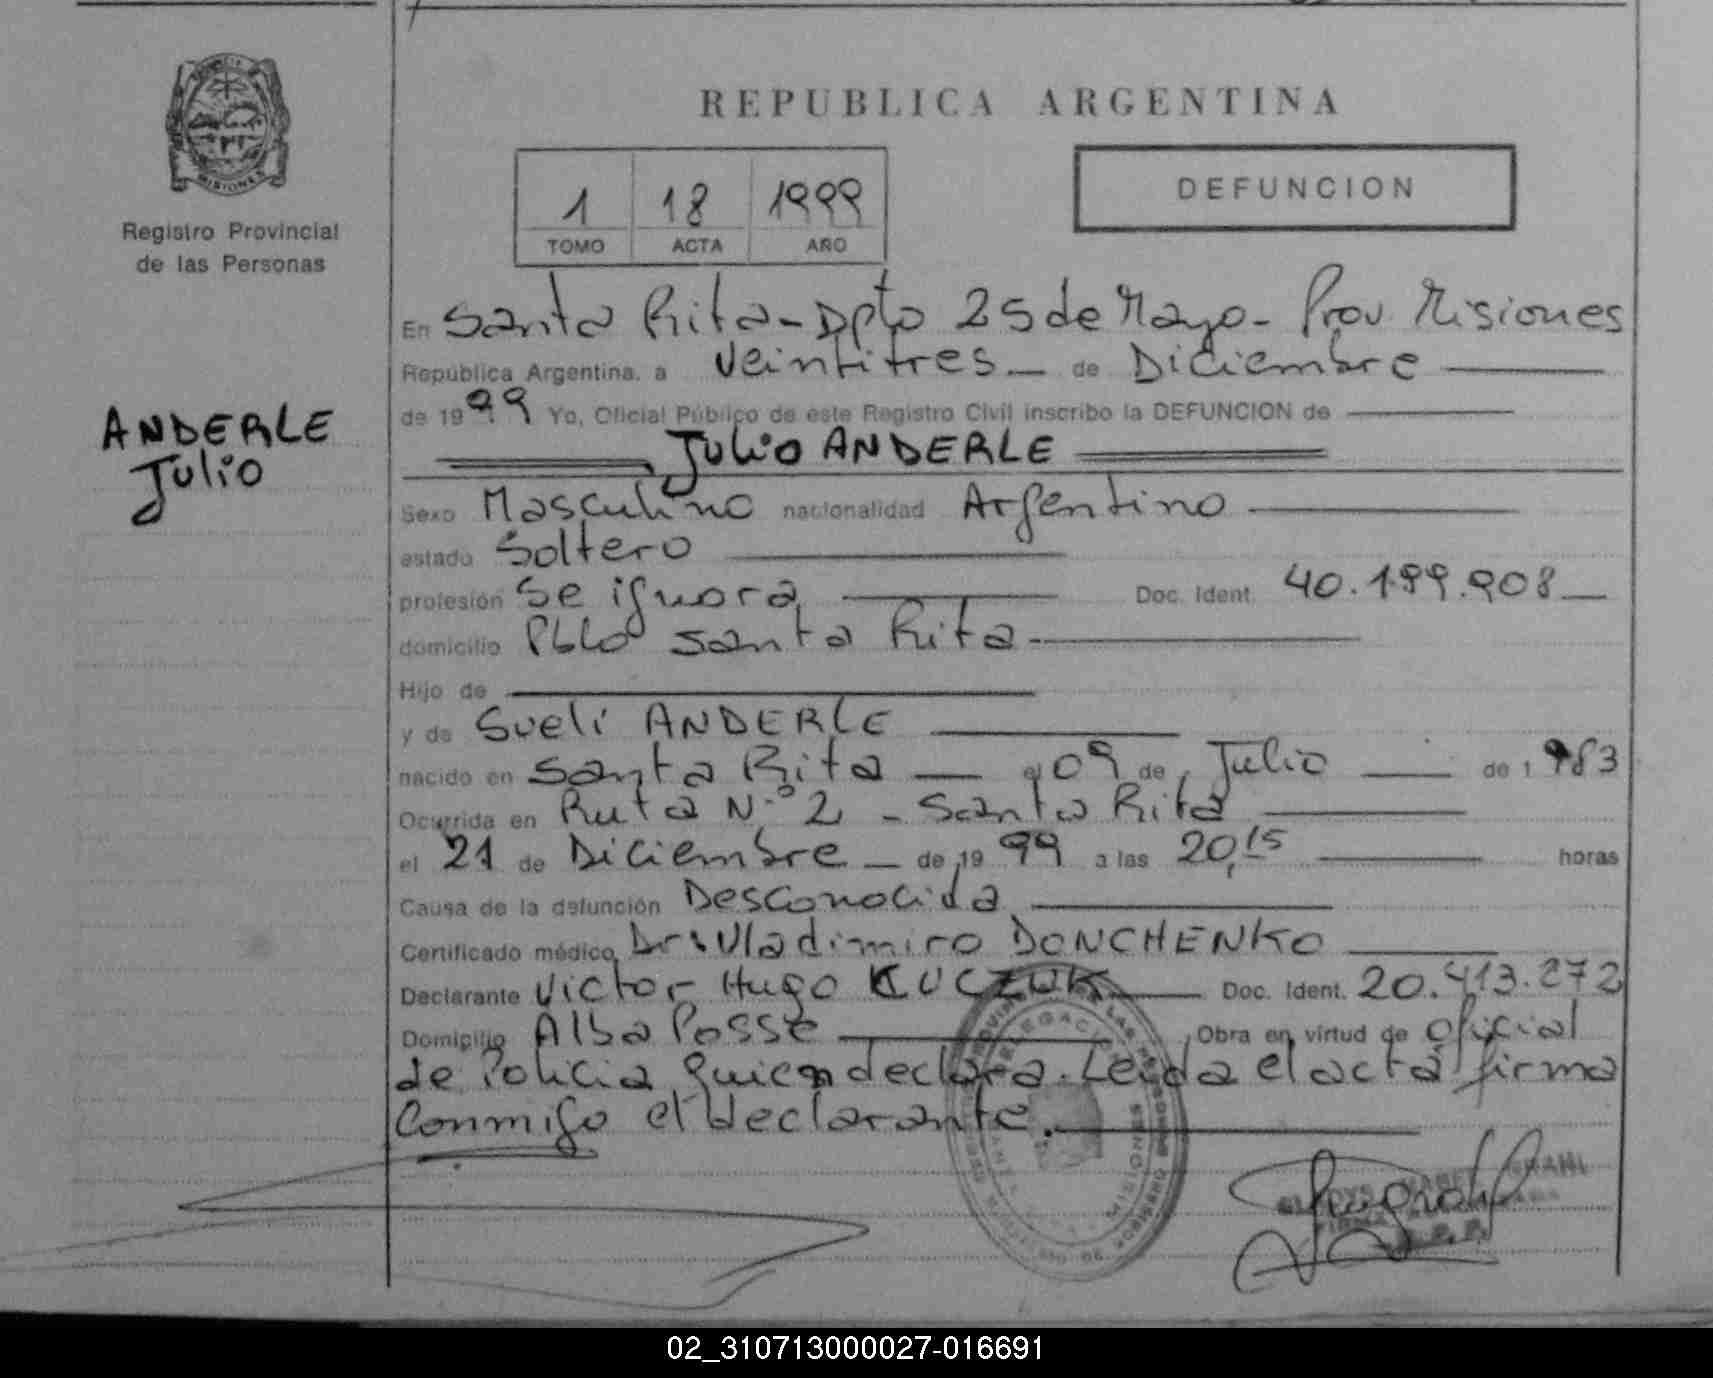 REPUBLICA ARGENTINA
MISIONES
Registro Provincial
de las Personas
1 18 1999
TOMO ACTA AÑO
DEFUNCION
En Santa Rita - Dpto 25 de Mayo - Prov Misiones
República Argentina, a veintitres de Diciembre
de 1999 Yo, Oficial Público de este Registro Civil inscribo la DEFUNCION de
ANDERLE
Julio
Julio ANDERLE
Sexo Masculino nacionalidad Argentino
estado Soltero
profesión Se ignora Doc. Ident. 40.199.908
domicilio Pblo Santa Rita
Hijo de
y de Sueli ANDERLE
nacido en Santa Rita el 09 de Julio de 1983
Ocurrida en Ruta N.º 2 - Santa Rita
el 21 de Diciembre de 1999 a las 20,15 horas
Causa de la defunción Desconocida
Certificado médico Dr. Vladimiro DONCHENKO
Declarante Victor Hugo KUCZUK Doc. Ident. 20.413.272
Domicilio Alba Posse Obra en virtud de oficial
de Policia quien declara. Leida el acta firma
conmigo el declarante.
02_310713000027-016691